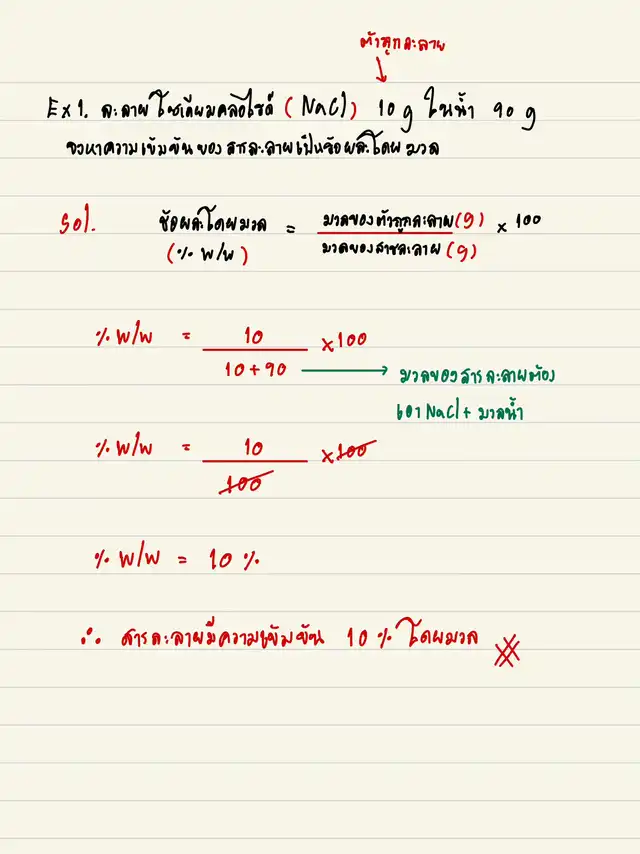 ตัวถูกละลาย
↓
Ex 1. ละลายโซเดียมคลอไรด์ (NaCl) 10 g ในน้ำ 90 g
จงหาความเข้มข้นของสารละลายเป็นร้อยละโดยมวล
Sol. ร้อยละโดยมวล = มวลของตัวถูกละลาย (g) × 100
(% w/w) มวลของสารละลาย (g)
% w/w = 10 × 100
10 + 90 → มวลของสารละลายต้อง
เอา NaCl + มวลน้ำ
% w/w = 10 × 100
100
% w/w = 10 %
∴ สารละลายมีความเข้มข้น 10 % โดยมวล